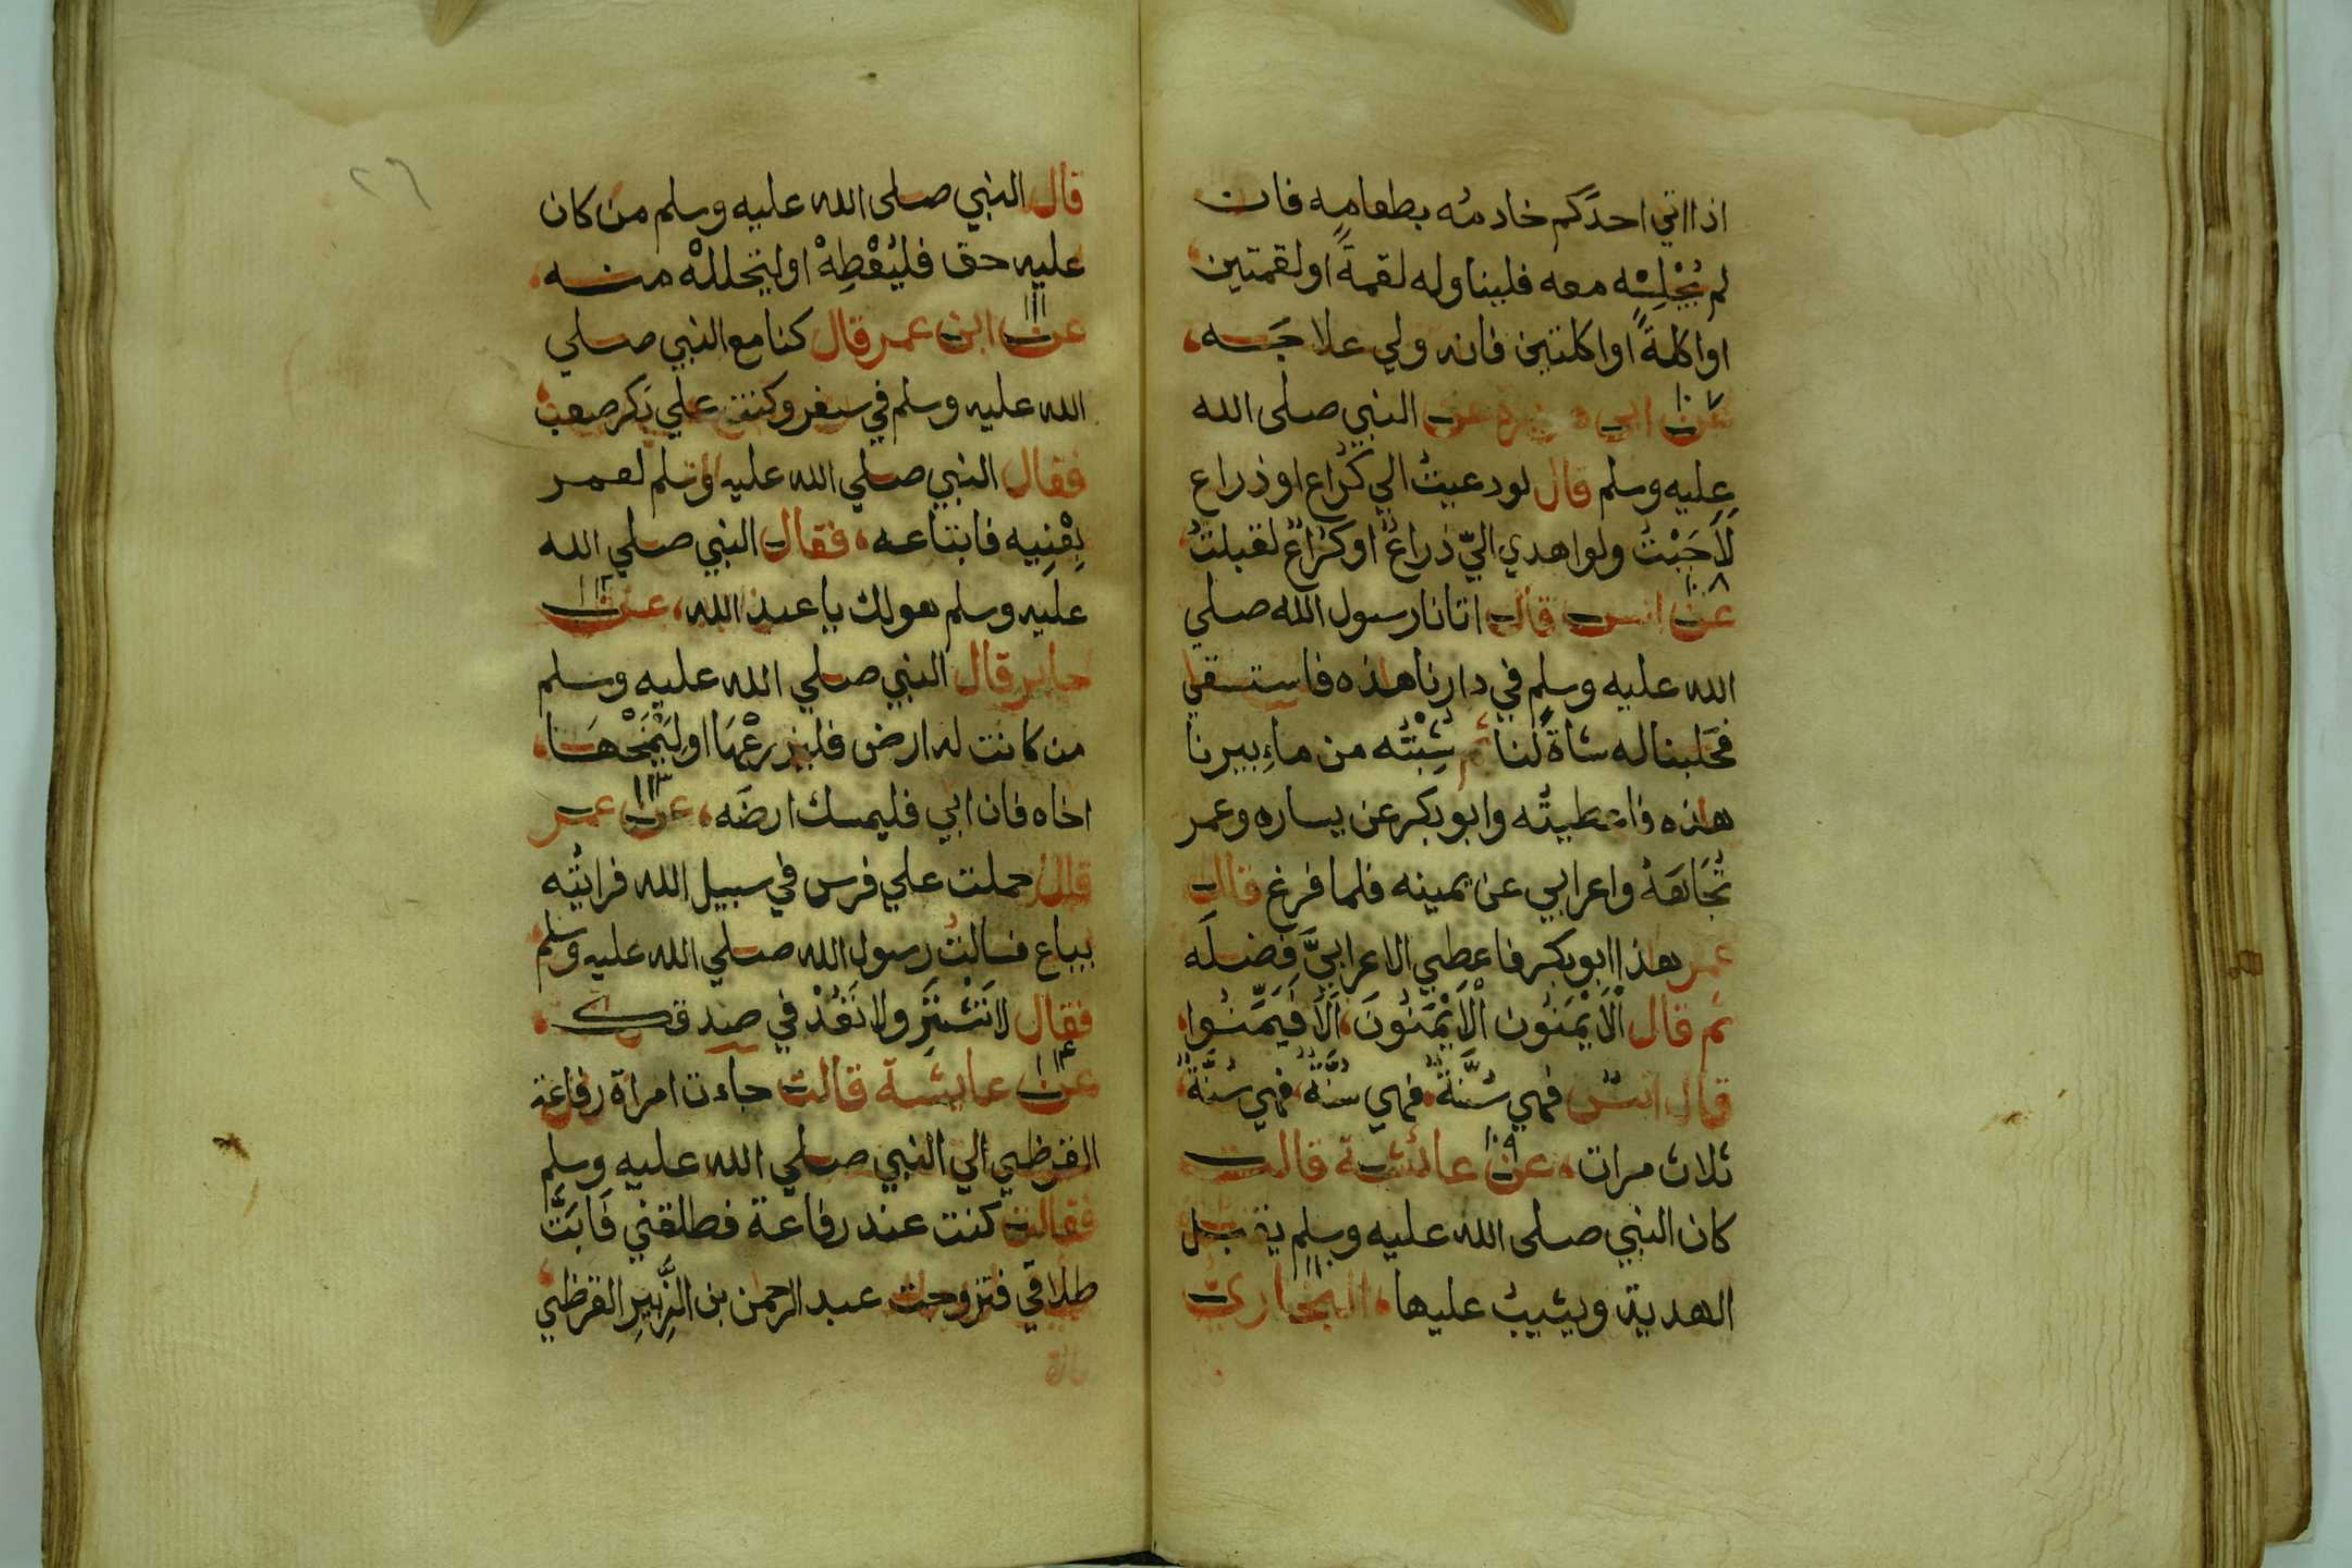 اذا اتي احدكم خادمُه بطعامِه فان
لم يُجْلِسْه معه فليناوله لقمةً او لقمتين
او اكلةً او اكلتين فانه ولي علاجَه
١٠٧
عن ابي هريرة عن النبي صلى الله
عليه وسلم قال لو دعيتُ الي كُراع او ذراع
لَاَجَبْتُ ولو اهدي اليّ ذراعٌ او كُراعٌ لقبلتُ
١٠٨
عن انس قال اتانا رسول الله صلي
الله عليه وسلم في دارنا هذه فاستسقي
فحَلبنا له شاةً لنا ثم شِبْتُه من ماءِ بيرنا
هذه فاعطيتُه وابو بكر عن يساره وعمر
تُجَاهَهُ واعرابي عن يمينه فلما فرغ قال
عمر هذا ابو بكر فاعطي الاعرابيَّ فضلَه
ثم قال اْلاَيْمَنُون اْلاَيْمَنُونَ، اَلاَ فَيَمِّنُوا،
قال انس فهي سُنَّةٌ، فهي سُنَّةٌ، فهي سُنَّةٌ،
١٠٩
ثلاث مرات، عن عائشة قالت
كان النبي صلى الله عليه وسلم يقبل
١١٠
الهدية ويثيبُ عليها، البخاريّ
٢٦
قال النبي صلى الله عليه وسلم من كان
عليه حق فليُعْطِهْ او ليتحللْهْ منه،
١١١
عن ابن عمر قال كنا مع النبي صلي
الله عليه وسلم في سفر وكنت علي بَكر صعب،
فقال النبي صلي الله عليه وسلم لعمر
بِعْنِيه فابتاعه، فقال النبي صلي الله
١١٢
عليه وسلم هو لك يا عبد الله، عن
جابر قال النبي صلي الله عليه وسلم
من كانت له ارض فليزرعْهَا او ليَمْنَحْهَا،
١١٣
اخاه فان ابي فليمسك ارضَه، عن عمر
قال حملت علي فرس في سبيل الله فرايتُه
يباع فسالتُ رسول الله صلي الله عليه وسلم
فقال لاَ تَشْتَرِ ولا تَعُدْ في صدقتك،
١١٤
عن عايشة قالت جاءت امراة رفاعة
القرظي الي النبي صلي الله عليه وسلم
فقالت كنت عند رفاعة فطلقني فَابَتَّ
طلاقي فتزوجت عبد الرحمن بن الزَّبِيرِ القرظي